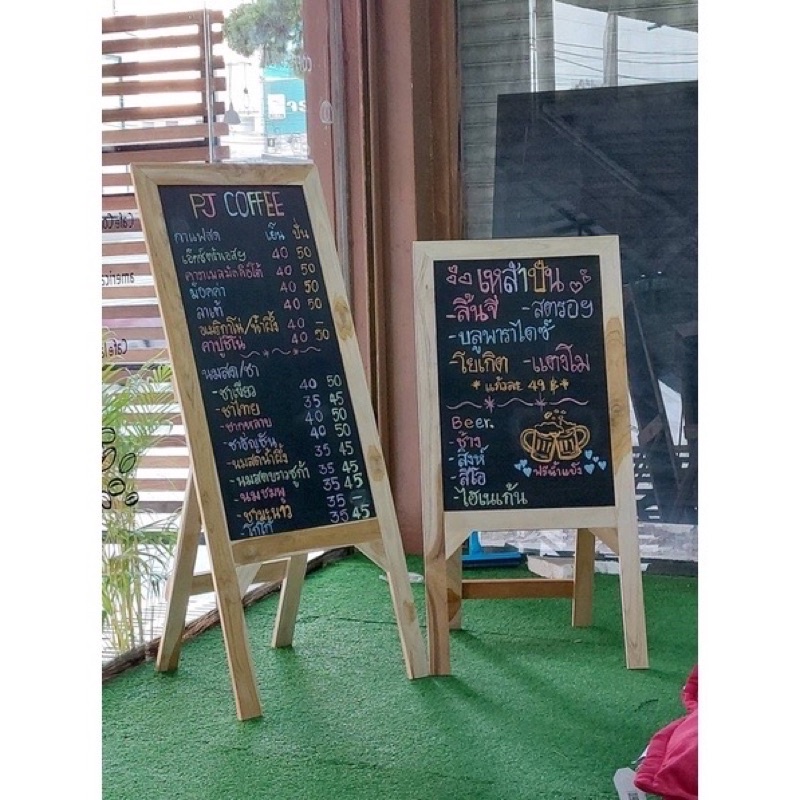 PJ COFFEE
กาแฟสด เย็น ปั่น
เอ็กซ์ตร้าเอสฯ 40 50
คาราเมลมัคคิอาโต้ 40 50
ม็อคค่า 40 50
ลาเต้ 40 50
อเมริกาโน่/น้ำผึ้ง 40 -
คาปูชิโน่ 40 50
นมสด/ชา
-ชาเขียว 40 50
-ชาไทย 35 45
-ชากุหลาบ 40 50
-ชาอัญชัน 40 50
-นมสดน้ำผึ้ง 35 45
-นมสดบราวชูก้า 35 45
-นมชมพู 35 45
-ชามะนาว 35 -
-โกโก้ 35 45
เหล้าปั่น
-ลิ้นจี่ -สตรอฯ
-บลูพาราไดซ์
-โยเกิต -แตงโม
* แก้วละ 49 ฿ *
Beer.
-ช้าง
-สิงห์
-ลีโอ
-ไฮเนเก้น
ฟรีน้ำแข็ง